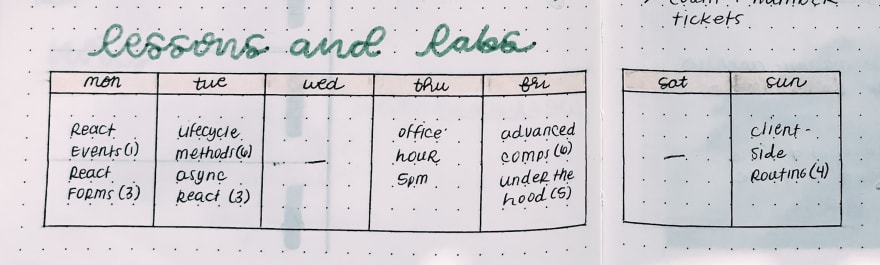 tickets
lessons and labs
mon tue wed thu fri sat sun
React
Events (1)
React
Forms (3)
Lifecycle
methods (6)
async
React (3)
—
office
hour
5pm
advanced
comps (6)
under the
hood (5)
—
client-
side
Routing (4)